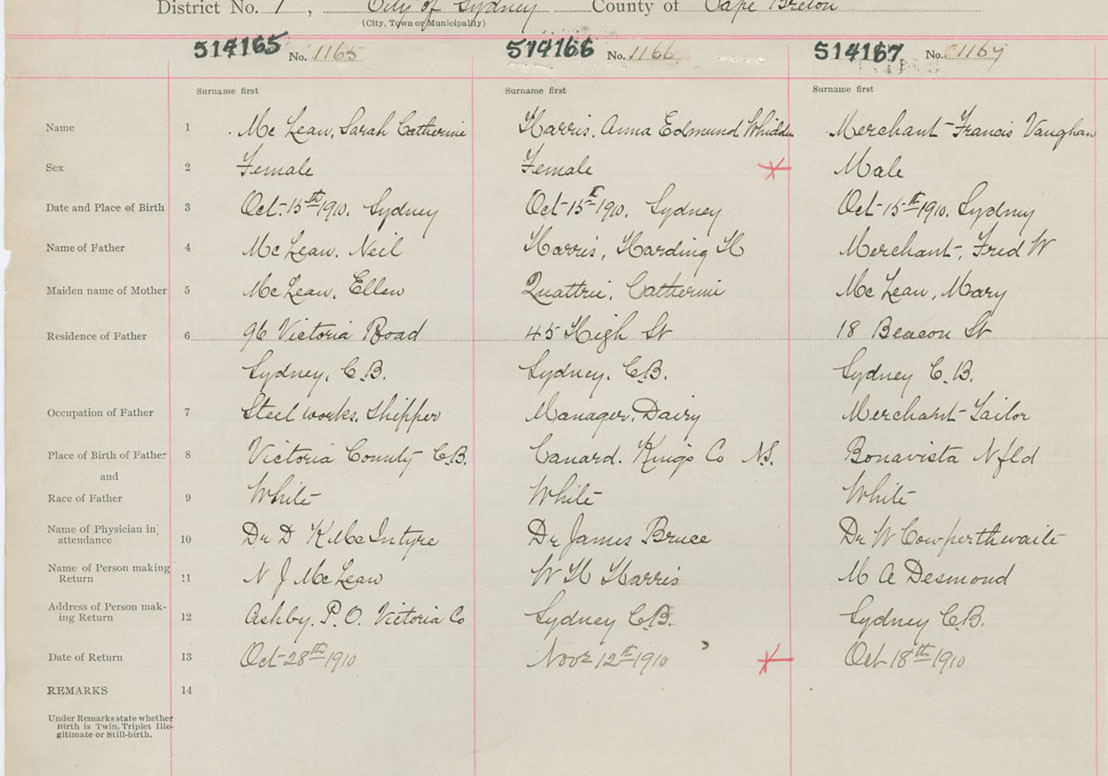 District No. 1, City of Sydney County of Cape Breton
(City, Town or Municipality)
514165 No. 1165 514166 No. 1166 514167 No. 1167
Surname first Surname first Surname first
Name 1 Mc Lean, Sarah Catherine Harris, Anna Edmund Whidden Merchant Francis Vaughan
Sex 2 Female Female Male
Date and Place of Birth 3 Oct. 15th 1910. Sydney Oct 15th 1910. Sydney Oct 15th 1910. Sydney
Name of Father 4 Mc Lean. Neil Harris, Harding H Merchant, Fred W
Maiden name of Mother 5 Mc Lean, Ellen Catherine Mc Lean, Mary
Residence of Father 6 96 Victoria Road 45 High St 18 Beacon St
Sydney, C.B. Sydney. C.B. Sydney C.B.
Occupation of Father 7 Steel works. Shipper Manager. Dairy Merchant Tailor
Place of Birth of Father 8 Victoria County C.B. Canard. Kings Co N.S. Bonavista Nfld
and
Race of Father 9 White White White
Name of Physician in attendance 10 Dr D K McIntyre Dr James Bruce Dr W Cowperthwaite
Name of Person making Return 11 N J McLean W H Harris M A Desmond
Address of Person making Return 12 Ashby. P.O. Victoria Co Sydney C.B. Sydney C.B.
Date of Return 13 Oct 28th 1910 Novr 12th 1910 Oct 18th 1910
REMARKS 14
Under Remarks state whether
Birth is Twin, Triplet Ille-
gitimate or Still-birth.